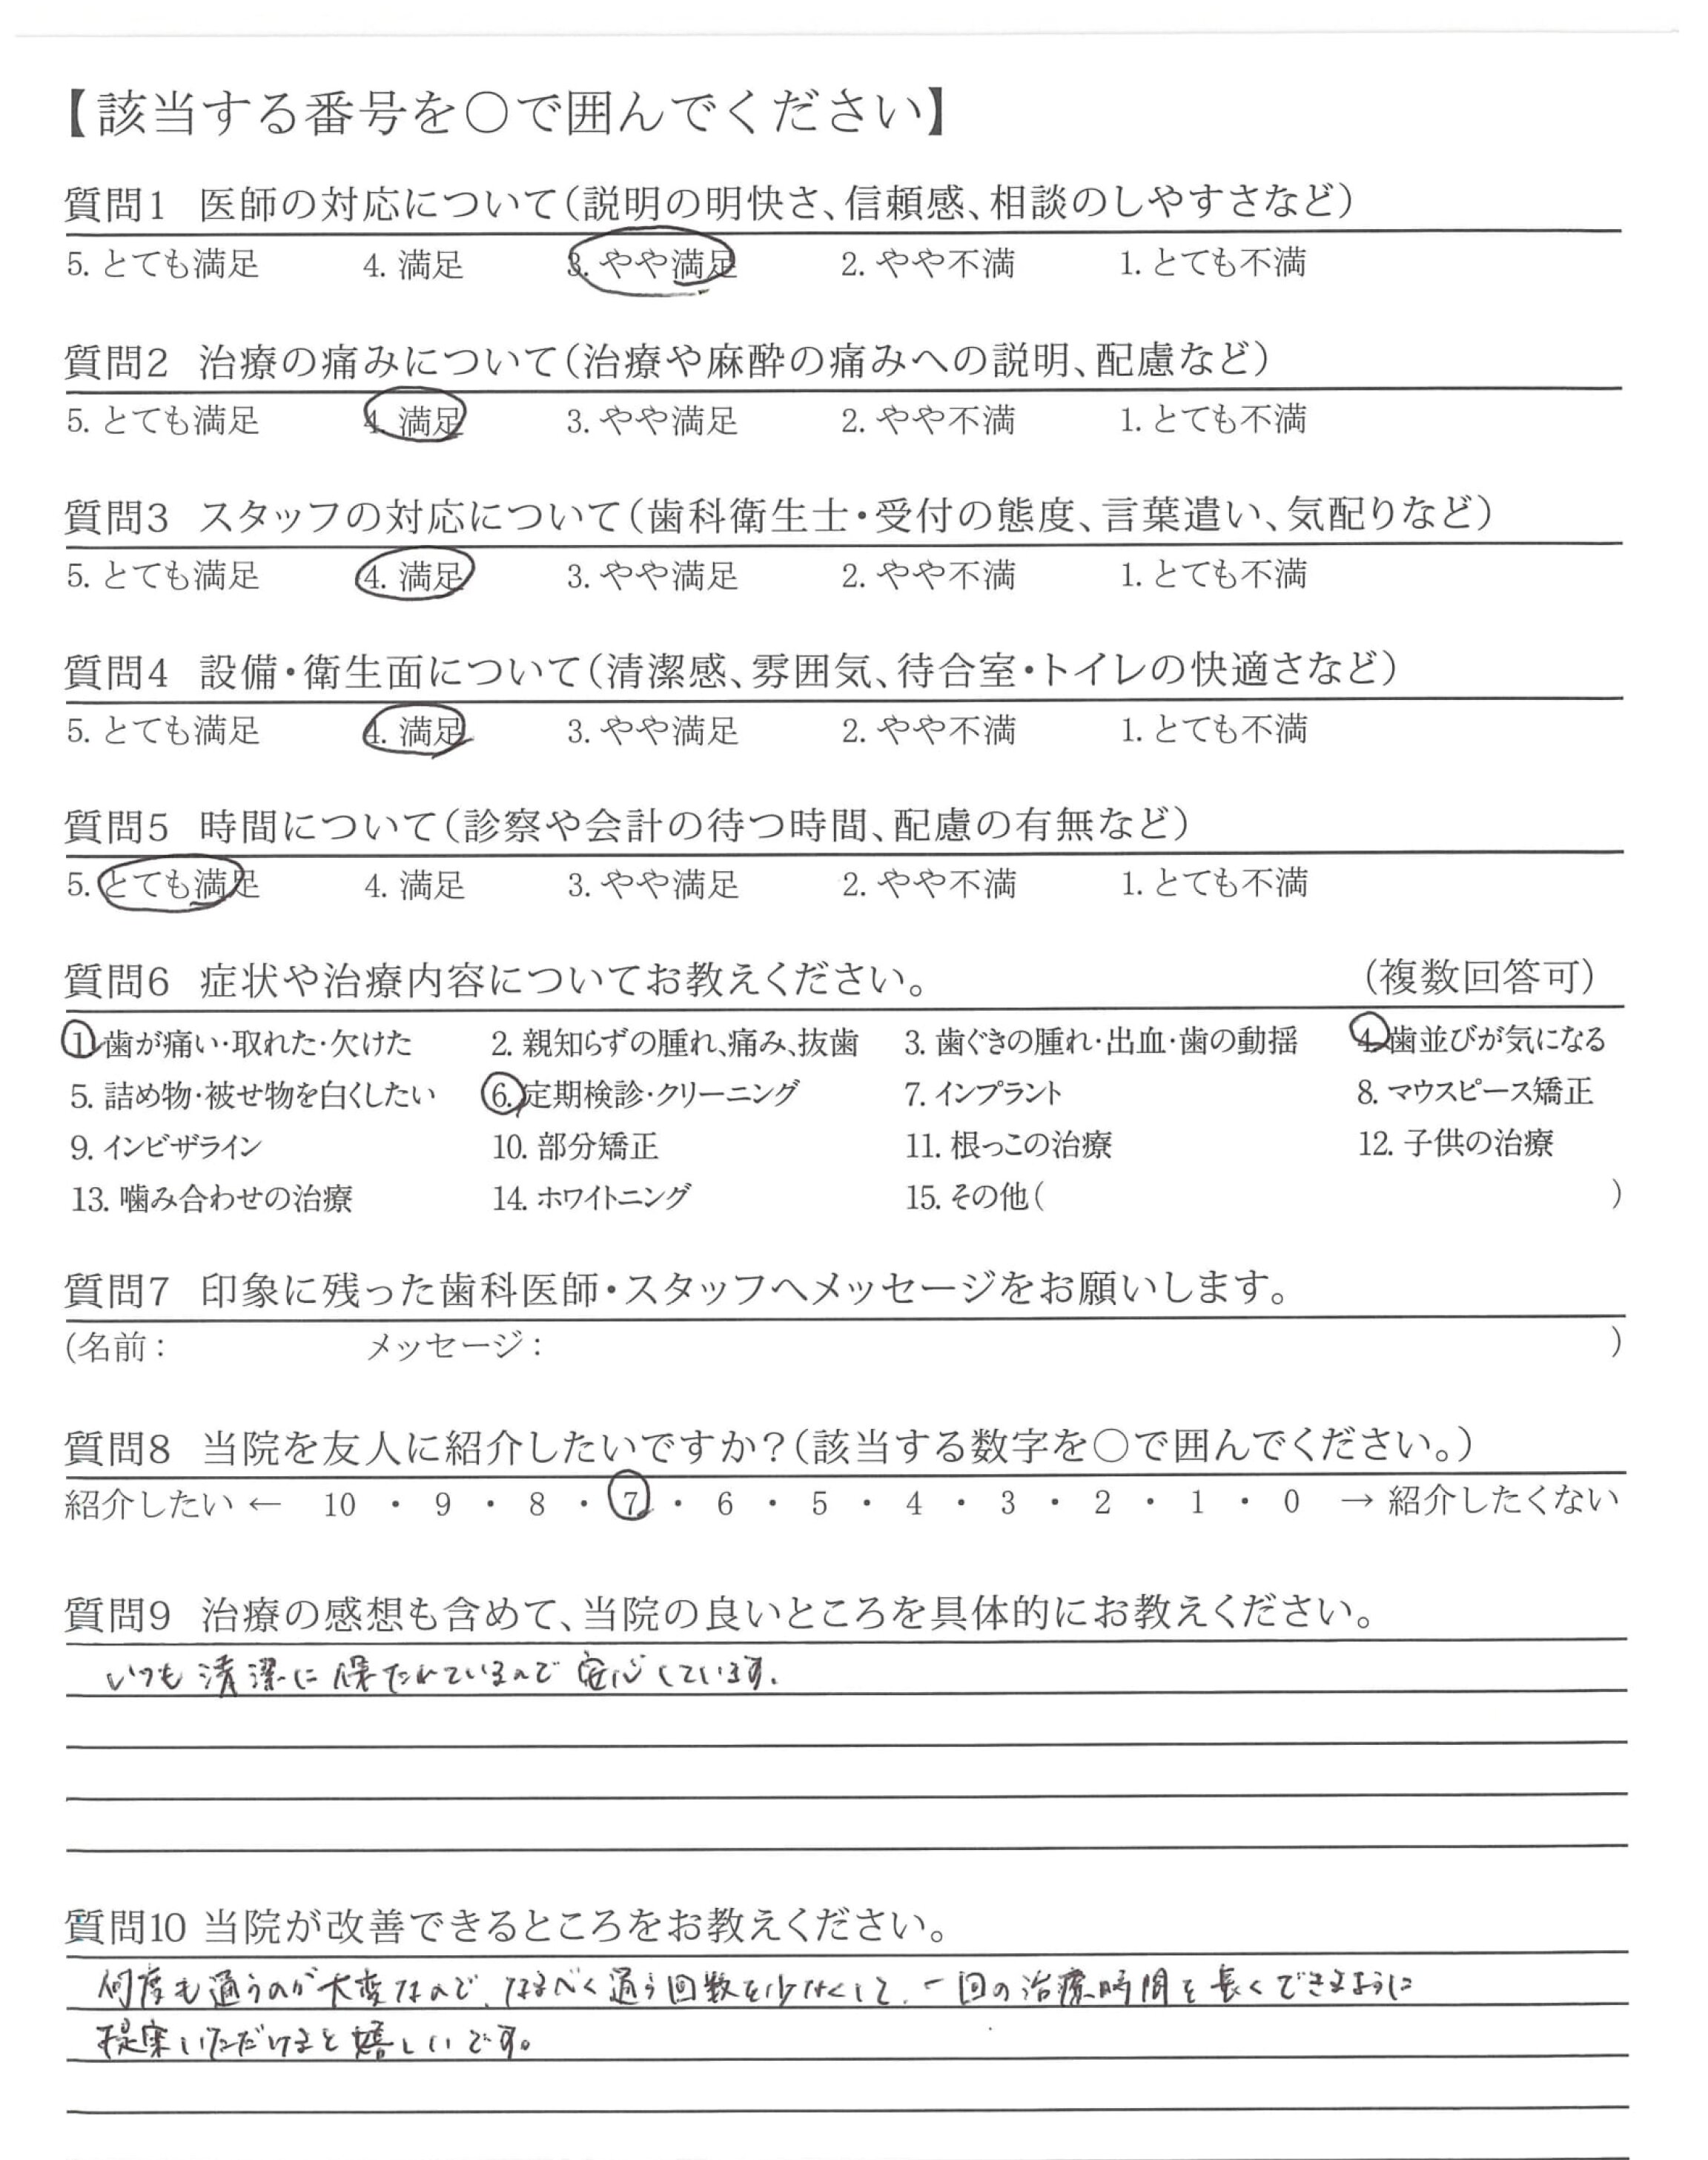 【該当する番号を○で囲んでください】
質問1 医師の対応について(説明の明快さ、信頼感、相談のしやすさなど)
5. とても満足 4. 満足 3. やや満足 2. やや不満 1. とても不満
質問2 治療の痛みについて(治療や麻酔の痛みへの説明、配慮など)
5. とても満足 4. 満足 3. やや満足 2. やや不満 1. とても不満
質問3 スタッフの対応について(歯科衛生士・受付の態度、言葉遣い、気配りなど)
5. とても満足 4. 満足 3. やや満足 2. やや不満 1. とても不満
質問4 設備・衛生面について(清潔感、雰囲気、待合室・トイレの快適さなど)
5. とても満足 4. 満足 3. やや満足 2. やや不満 1. とても不満
質問5 時間について(診察や会計の待つ時間、配慮の有無など)
5. とても満足 4. 満足 3. やや満足 2. やや不満 1. とても不満
質問6 症状や治療内容についてお教えください。 (複数回答可)
1. 歯が痛い・取れた・欠けた 2. 親知らずの腫れ、痛み、抜歯 3. 歯ぐきの腫れ・出血・歯の動揺 4. 歯並びが気になる
5. 詰め物・被せ物を白くしたい 6. 定期検診・クリーニング 7. インプラント 8. マウスピース矯正
9. インビザライン 10. 部分矯正 11. 根っこの治療 12. 子供の治療
13. 噛み合わせの治療 14. ホワイトニング 15. その他( )
質問7 印象に残った歯科医師・スタッフへメッセージをお願いします。
(名前: メッセージ: )
質問8 当院を友人に紹介したいですか?(該当する数字を○で囲んでください。)
紹介したい ← 10 ・ 9 ・ 8 ・ 7 ・ 6 ・ 5 ・ 4 ・ 3 ・ 2 ・ 1 ・ 0 → 紹介したくない
質問9 治療の感想も含めて、当院の良いところを具体的にお教えください。
いつも清潔に保たれているので安心しています.
質問10 当院が改善できるところをお教えください。
何度も通うのが大変なので、なるべく通う回数を少なくして、一回の治療時間を長くできるように
提案いただけると嬉しいです。